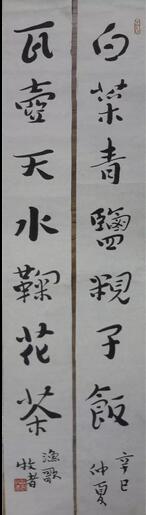 白菜青鹽粯子飯
辛巳
仲夏
瓦壺天水鞠花茶
漁歌
牧者